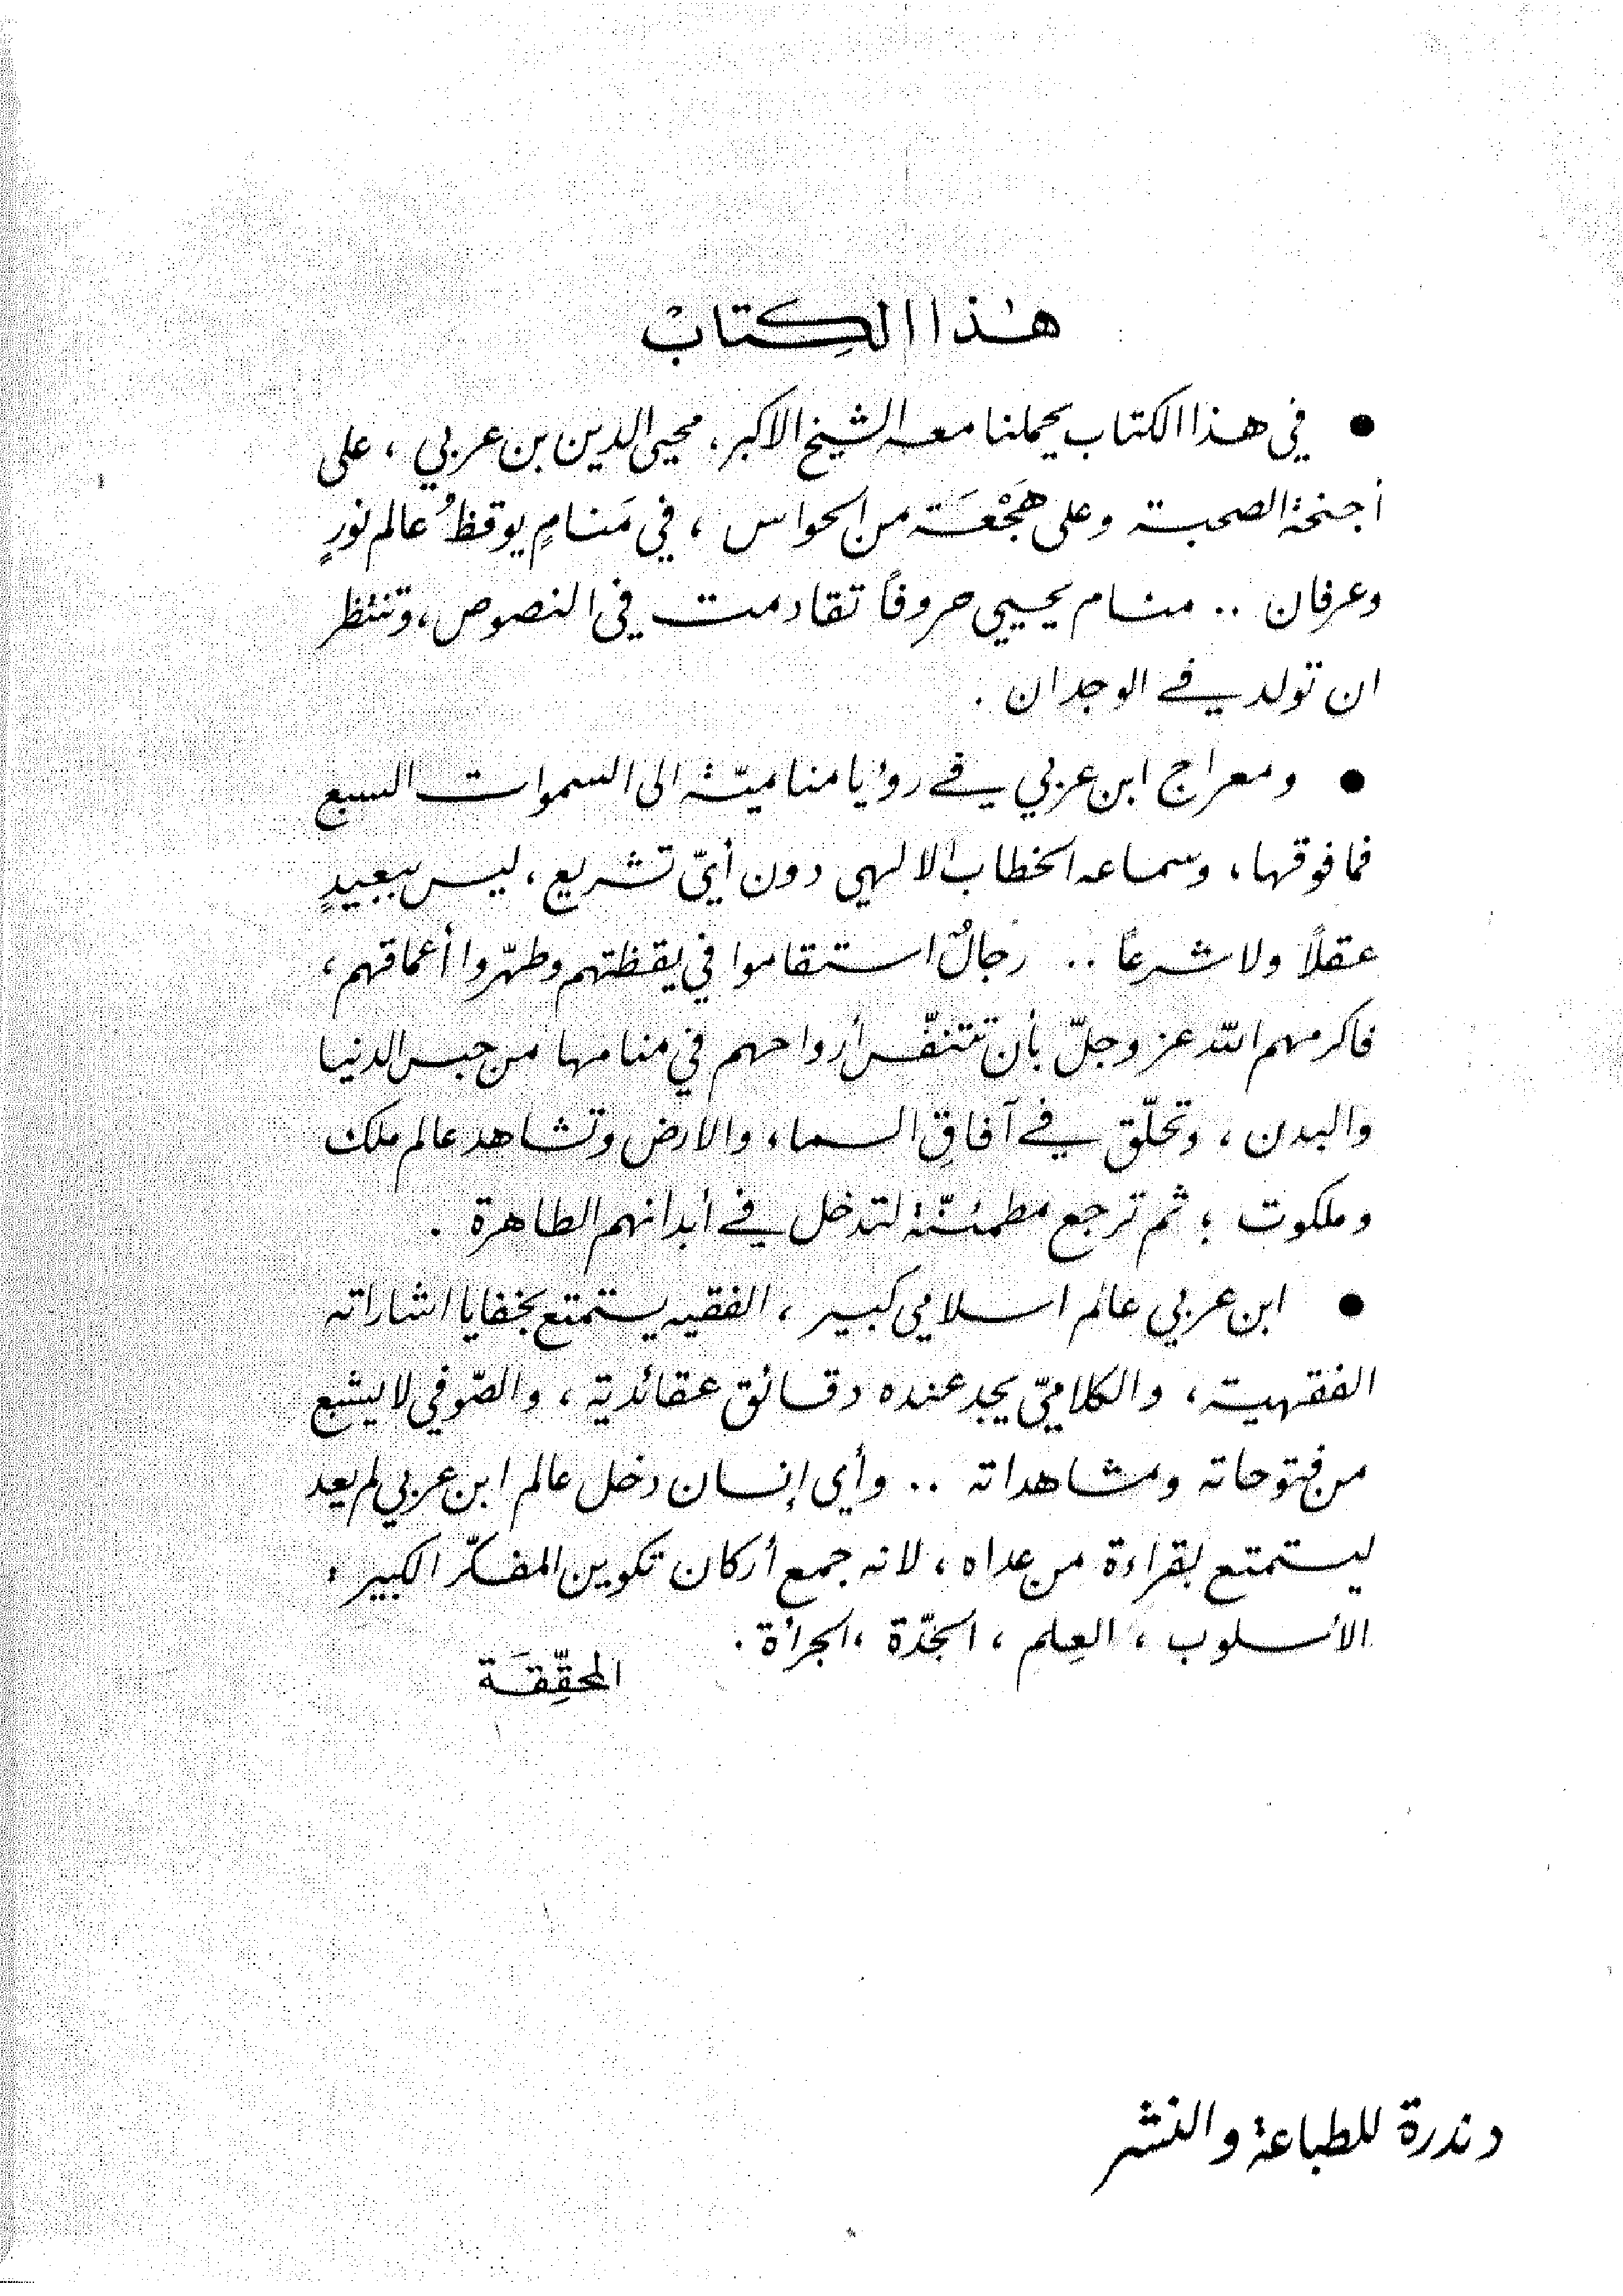 هذا الكِتابْ
● في هذا الكتاب يحملنا معه الشيخ الاكبر، محيي الدين بن عربي ، على
أجنحة الصحبة وعلى هَجْعَة من الحواس ، في مَنامٍ يوقظُ عالم نورٍ
وعرفان .. منام يحيي حروفاً تقادمت في النصوص، وتنتظر
ان تولد في الوجدان .
● ومعراج ابن عربي في رؤيا مناميّة الى السموات السبع
فما فوقها، وسماعه الخطاب الالهي دون أيّ تشريع، ليس ببعيدٍ
عقلاً ولا شرعاً .. رجالٌ استقاموا في يقظتهم وطهّروا أعماقهم،
فاكرمهم الله عز وجلّ بأن تتنفّس أرواحهم في منامها من حبس الدنيا
والبدن ، وتحلّق في آفاقِ السماء والارض وتشاهد عالم ملك
وملكوت ؛ ثم ترجع مطمئنّة لتدخل في أبدانهم الطاهرة .
● ابن عربي عالم اسلامي كبير ، الفقيه يستمتع بخفايا اشاراته
الفقهية، والكلاميّ يجد عنده دقائق عقائدية ، والصّوفي لا يشبع
من فتوحاته ومشاهداته .. وأي إنسان دخل عالم ابن عربي لم يعد
ليستمتع بقراءة من عداه ، لانه جمع أركان تكوين المفكّر الكبير :
الأسلوب ، العِلم ، الجدّة ، الجرأة .
المحقِّقَة
دندرة للطباعة والنشر